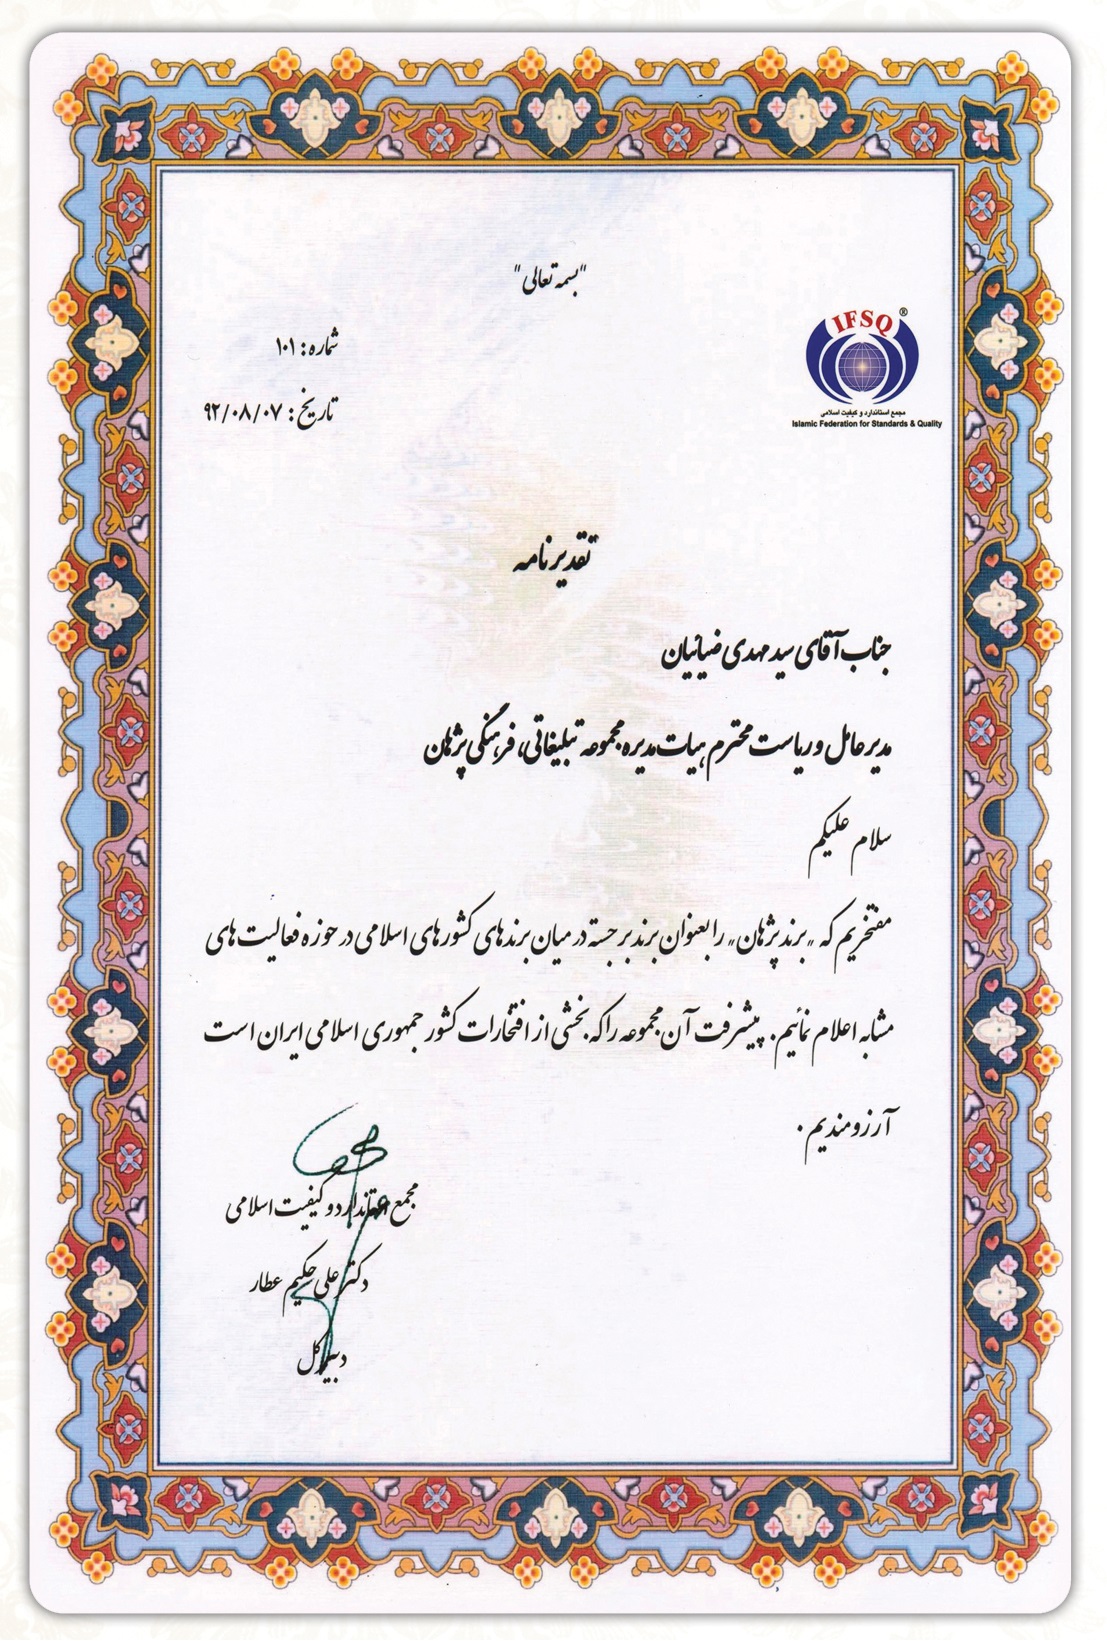 "بسمه تعالی"
IFSQ®
مجمع استاندارد و کیفیت اسلامی
Islamic Federation for Standards & Quality
شماره: ۱۰۱
تاریخ: ۹۲/۰۸/۰۷
تقدیرنامه
جناب آقای سید مهدی ضیائیان
مدیر عامل و ریاست محترم هیات مدیره مجموعه تبلیغاتی، فرهنگی پژهان
سلام علیکم
مفتخریم که "برند پژهان" را بعنوان برند برجسته در میان برندهای کشورهای اسلامی در حوزه فعالیت های
مشابه اعلام نمائیم. پیشرفت آن مجموعه را که بخشی از افتخارات کشور جمهوری اسلامی ایران است
آرزومندیم.
مجمع استاندارد و کیفیت اسلامی
دکتر علی حکیم عطار
دبیر کل